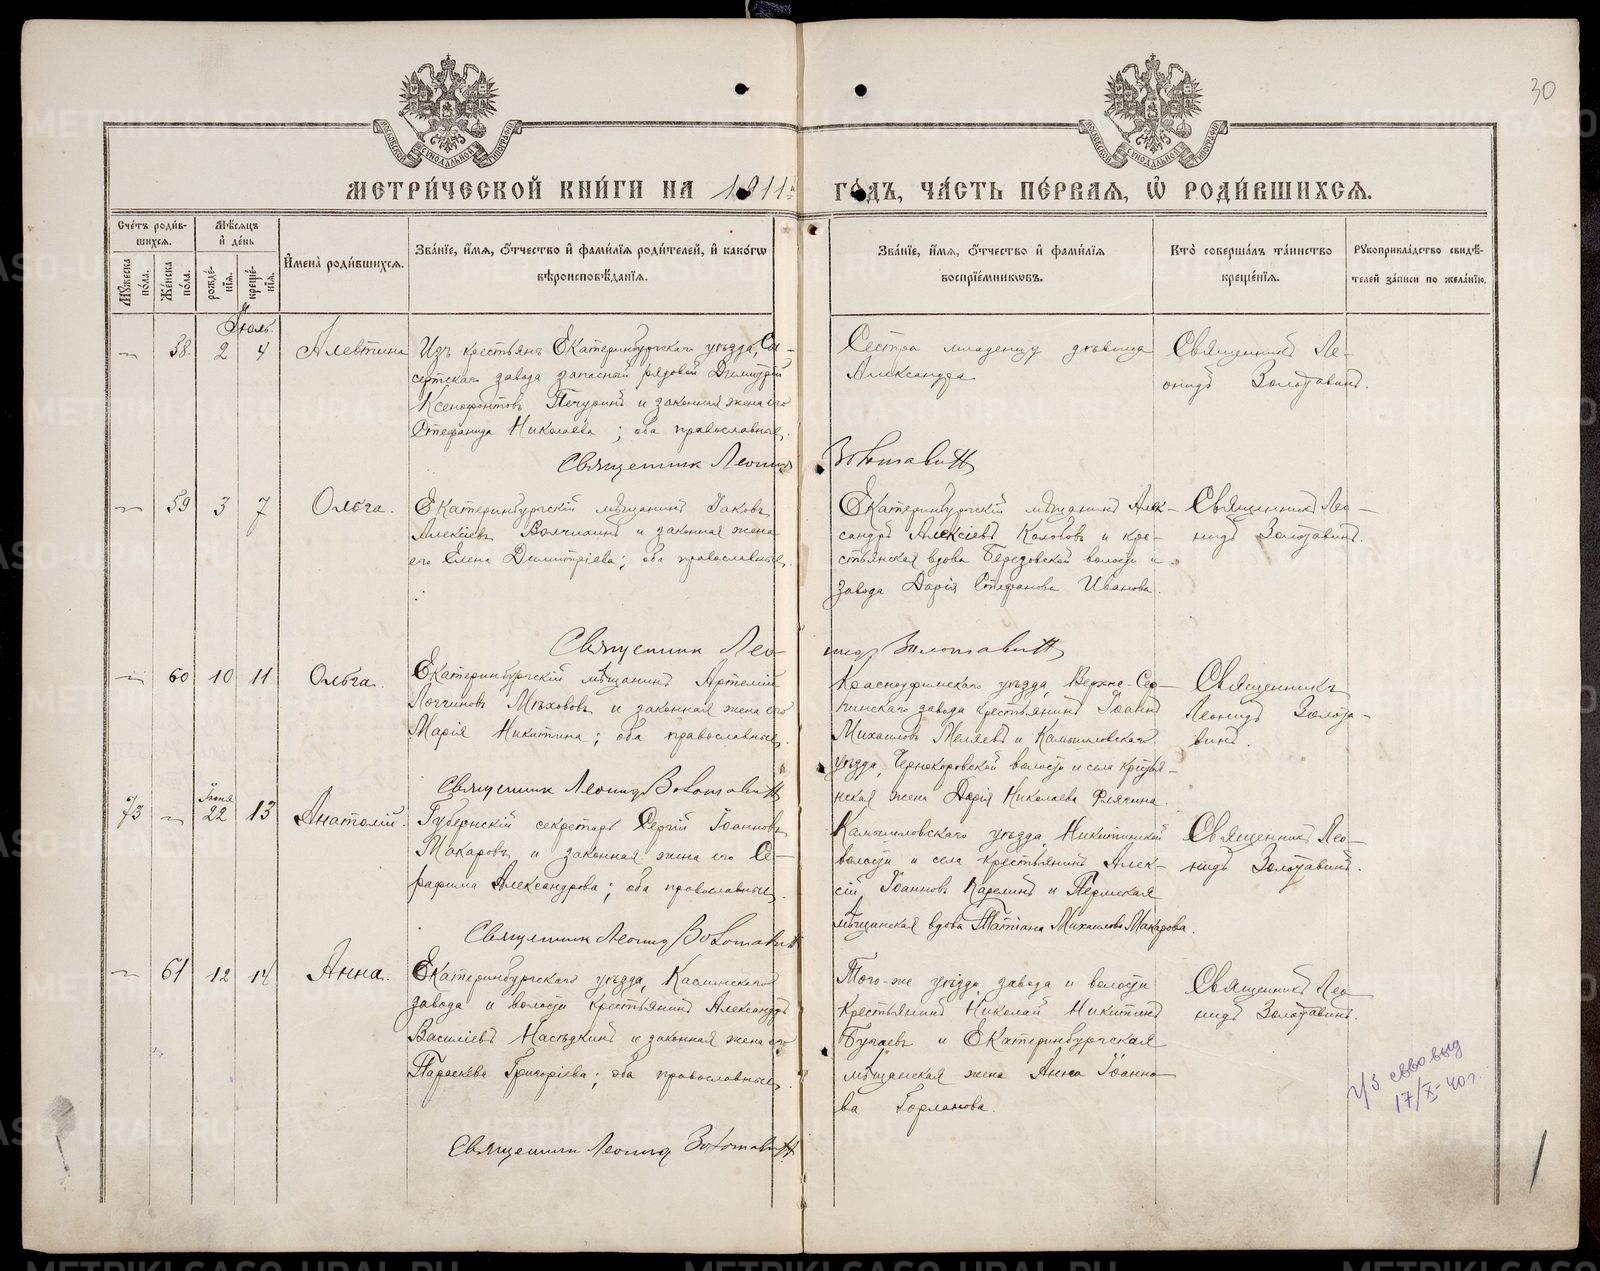 30
МЕТРИ́ЧЕСКОЙ КНИ́ГИ НА 1911й ГО́ДЪ, ЧА́СТЬ ПЕ́РВАЯ, Ѡ҆ РОДИ́ВШИХСЯ.
Сче́тъ роди́в-
шихся.
Мꙋ́жеска по́ла.
Же́нска по́ла.
Мѣ́сяцъ и҆ де́нь
рожде́-
нїя.
креще́-
нїя.
И҆мена̀ роди́вшихся.
Зва́нїе, и҆́мя, ѻ҆́тчество и҆ фами́лїя роди́телей, и҆ како́гѡ
вѣроисповѣ́данїя.
Зва́нїе, и҆́мя, ѻ҆́тчество и҆ фами́лїя
воспрїе́мникѡвъ.
Кто̀ соверша́лъ та́инство
креще́нїя.
Рꙋкоприкла́дство свидѣ́-
телей за́писи по жела́нїю.
Іюль.
58. 2 4 Алевтина
Изъ крестьянъ Екатеринбургскаго уѣзда, Сы-
сертскаго завода запасный рядовой Димитрій
Ксенофонтовъ Печуринъ и законная жена его
Стефанида Николаева; оба православные.
Сестра младенцу дѣвица
Александра
Священникъ Ле-
онидъ Золотавинъ.
Священник Леонид Золотавин
59 3 7 Ольга.
Екатеринбургскій мѣщанинъ Іаковъ
Алексіевъ Волчихинъ и законная жена
его Елена Димитріева; оба православные.
Екатеринбургскій мѣщанинъ Алек-
сандръ Алексіевъ Колобовъ и кре-
стьянская вдова Березовской волости и
завода Дарія Стефанова Иванова.
Священникъ Лео-
нидъ Золотавинъ.
Священник Леонид Золотавин
60 10 11 Ольга.
Екатеринбургскій мѣщанинъ Артемій
Логгиновъ Мѣховъ и законная жена его
Марія Никитина; оба православные.
Красноуфимскаго уѣзда, Верхне-Сер-
гинскаго завода крестьянинъ Іоаннъ
Михаиловъ Меляевъ и Камышловскаго
уѣзда, Чернокоровской волости и села кресть-
янская жена Дарія Николаева Флягина.
Священникъ
Леонидъ Золота-
винъ.
Священник Леонид Золотавин
73 Іюня 22 13 Анатолій.
Губернскій секретарь Сергій Іоанновъ
Макаровъ и законная жена его Се-
рафима Александрова; оба православные.
Камышловскаго уѣзда, Никитинской
волости и села крестьянинъ Алек-
сій Іоанновъ Карелинъ и Пермская
мѣщанская вдова Татіана Михаилова Макарова.
Священникъ Лео-
нидъ Золотавинъ.
Священник Леонид Золотавин
61 12 14 Анна.
Екатеринбургскаго уѣзда, Каслинскаго
завода и волости крестьянинъ Александръ
Василіевъ Насѣдкинъ и законная жена его
Параскева Григоріева; оба православные.
Того-же уѣзда, завода и волости
крестьянинъ Николай Никитинъ
Бугаевъ и Екатеринбургская
мѣщанская жена Анна Іоанно-
ва Горланова.
Священникъ Лео-
нидъ Золотавинъ.
Священник Леонид Золотавин
17/X-40 г.
METRIKI.GASO-URAL.RU